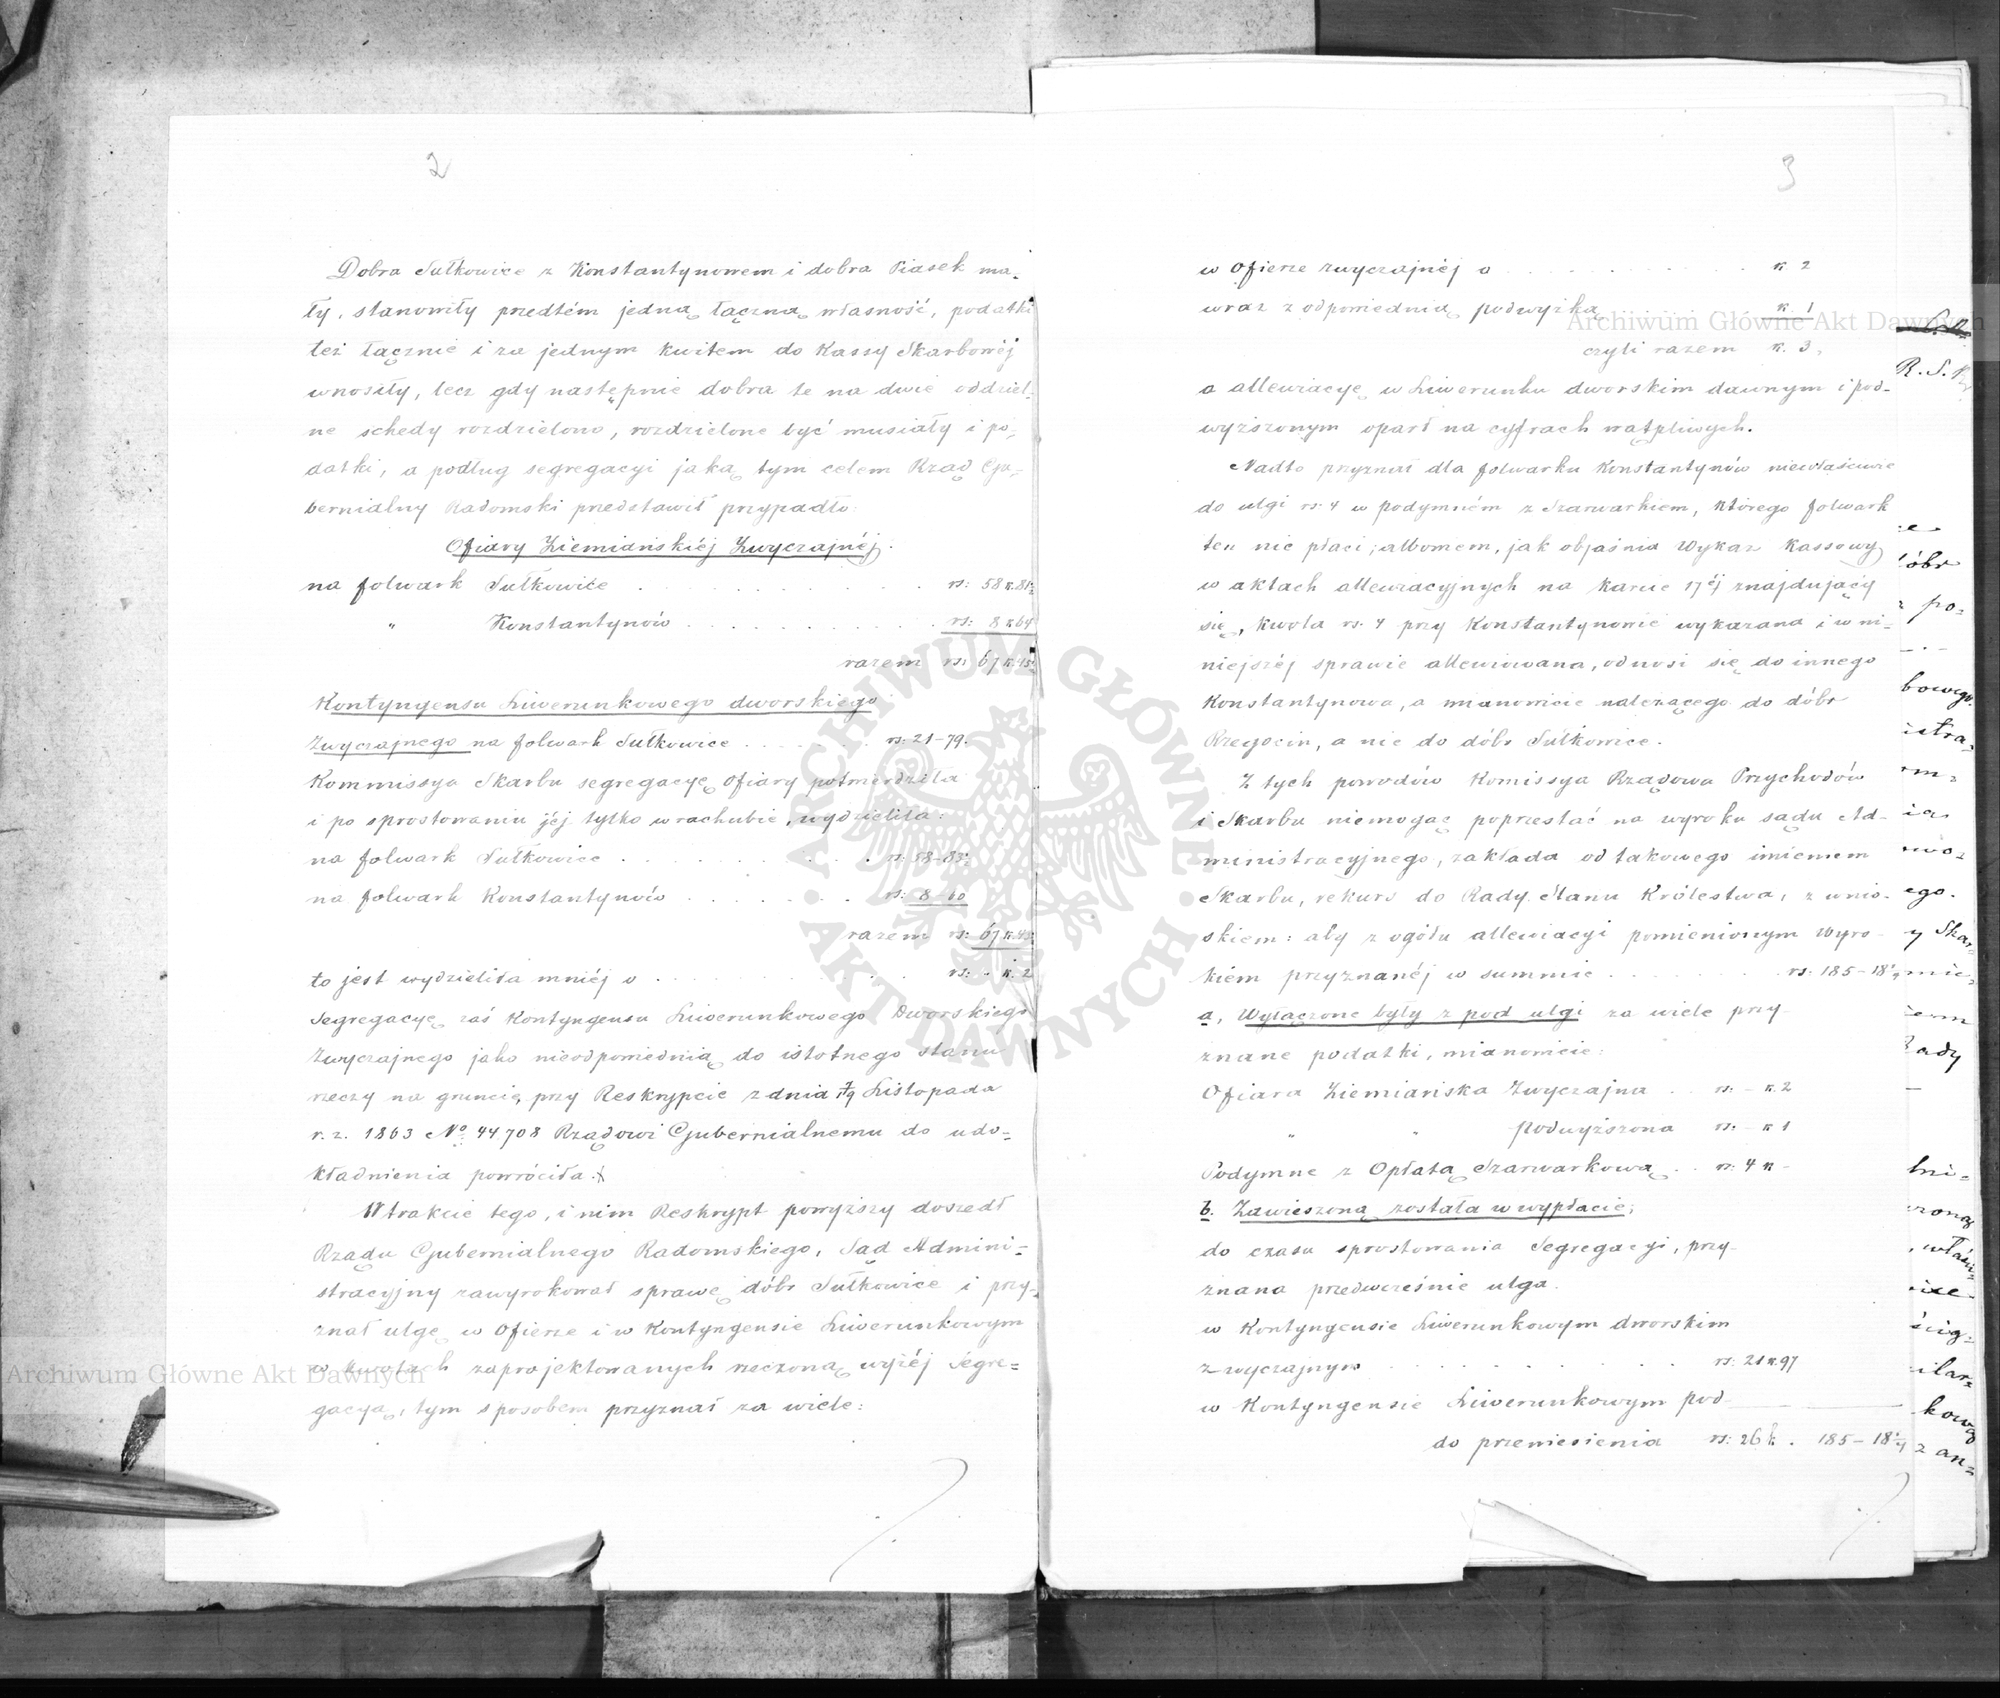 2
Dobra Sułkowice z Konstantynowem i dobra Piasek ma-
ły, stanowiły przedtém jedną łączną własność, podatki
też łącznie i za jednym kwitem do Kassy Skarbowéj
wnosiły, lecz gdy następnie dobra te na dwie oddziel-
ne schedy rozdzielono, rozdzielone być musiały i po-
datki, a podług segregacyi jaką tym celem Rząd Gu-
bernialny Radomski przedstawił przypadło:
Ofiary Ziemiańskiéj Zwyczajnéj.
na folwark Sułkowice . . . . . . . rs: 58 k. 81½
" Konstantynów . . . . . . . rs: 8 k 64
razem rs: 67 k. 45½
Kontyngensu Liwerunkowego dworskiego
Zwyczajnego na folwark Sułkowice . . . . . . rs: 21-79.
Kommissya Skarbu segregacyę Ofiary potwierdziła
i po sprostowaniu jéj tylko w rachubie, wydzieliła:
na folwark Sułkowice . . . . . . . rs: 58-83½
na folwark Konstantynów . . . . . . rs: 8-60
razem rs: 67 k. 43½
to jest wydzieliła mniéj o . . . . . . . rs: . k. 2
Segregacyę zaś Kontyngensu Liwerunkowego Dworskiego
Zwyczajnego jako nieodpowiednią do istotnego stanu
rzeczy na gruncie, przy Reskrypcie z dnia 7/19 Listopada
r. z. 1863 No 44708 Rządowi Gubernialnemu do udo-
kładnienia powróciła.
W trakcie tego, i nim Reskrypt powyższy doszedł
Rządu Gubernialnego Radomskiego, Sąd Admini-
stracyjny zawyrokował sprawę dóbr Sułkowice i przy-
znał ulgę w Ofierze i w Kontyngensie Liwerunkowym
w kwotach zaprojektowanych rzeczoną wyżéj Segre-
gacyą, tym sposobem przyznał za wiele:
3
w Ofierze zwyczajnéj o . . . . . . . k 2
wraz z odpowiednią podwyżką k. 1
czyli razem k. 3,
a allewiacyę w Liwerunku dworskim dawnym i pod-
wyższonym oparł na cyfrach wątpliwych.
Nadto przyznał dla folwarku Konstantynów niewłaściwie
do ulgi rs. 4 w podymném z Szarwarkiem, którego folwark
ten nie płaci; albowiem, jak objaśnia Wykaz Kassowy
w aktach allewiacyjnych na karcie 17éj znajdujący
się, kwota rs. 4 przy Konstantynowie wykazana i w ni-
niejszéj sprawie allewiowana, odnosi się do innego
Konstantynowa, a mianowicie należącego do dóbr
Rzegocin, a nie do dóbr Sułkowice.
Z tych powodów Komissya Rządowa Przychodów
i Skarbu niemogąc poprzestać na wyroku sądu Ad-
ministracyjnego, zakłada od takowego imieniem
Skarbu, rekurs do Rady Stanu Królestwa, z wnio-
skiem: aby z ogółu allewiacyi pomienionym Wyro-
kiem przyznanéj w summie . . . . . . rs: 185-18½
a, Wyłączone były z pod ulgi za wiele przy-
znane podatki, mianowicie:
Ofiara Ziemiańska Zwyczajna . . rs: - k. 2
" " podwyższona rs: - k 1
Podymne z Opłatą Szarwarkową . . rs: 4 k -
b. Zawieszoną została w wypłacie;
do czasu sprostowania Segregacyi, przy-
znana przedwcześnie ulga.
w Kontyngensie Liwerunkowym dworskim
zwyczajnym . . . . . . . . rs: 21 k 97
w Kontyngensie Liwerunkowym pod-
do przeniesienia rs: 26 k. . 185-18½
R. S. K.
óbr
po-
bowego
istra-
ego.
y Skar-
ady
lni-
kową
z an-
Archiwum Główne Akt Dawnych
Archiwum Główne Akt Dawnych
ARCHIWUM GŁÓWNE AKT DAWNYCH